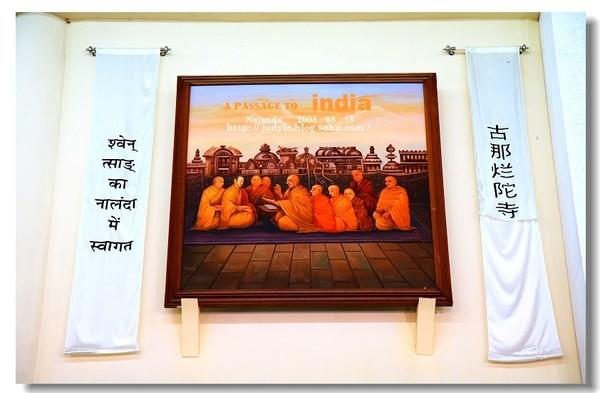 श्वेन्
त्साङ्
का
नालंदा
में
स्वागत
A PASSAGE TO india
Nalanda 2008.08.18
http://judyle.blog.sohu.com/
古那烂陀寺